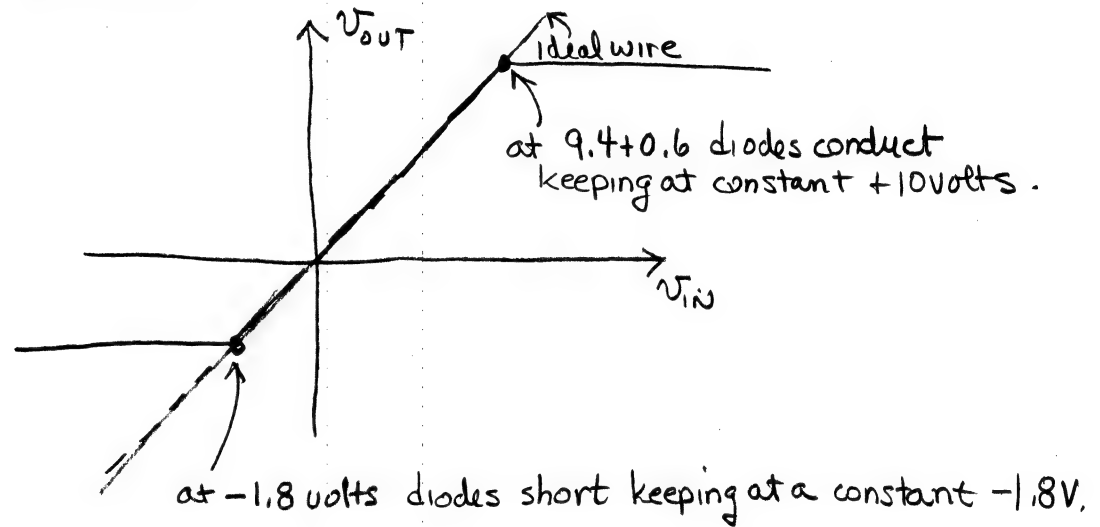 VOUT
ideal wire
at 9.4+0.6 diodes conduct
keeping at constant +10volts.
VIN
at -1.8 volts diodes short keeping at a constant -1.8V.